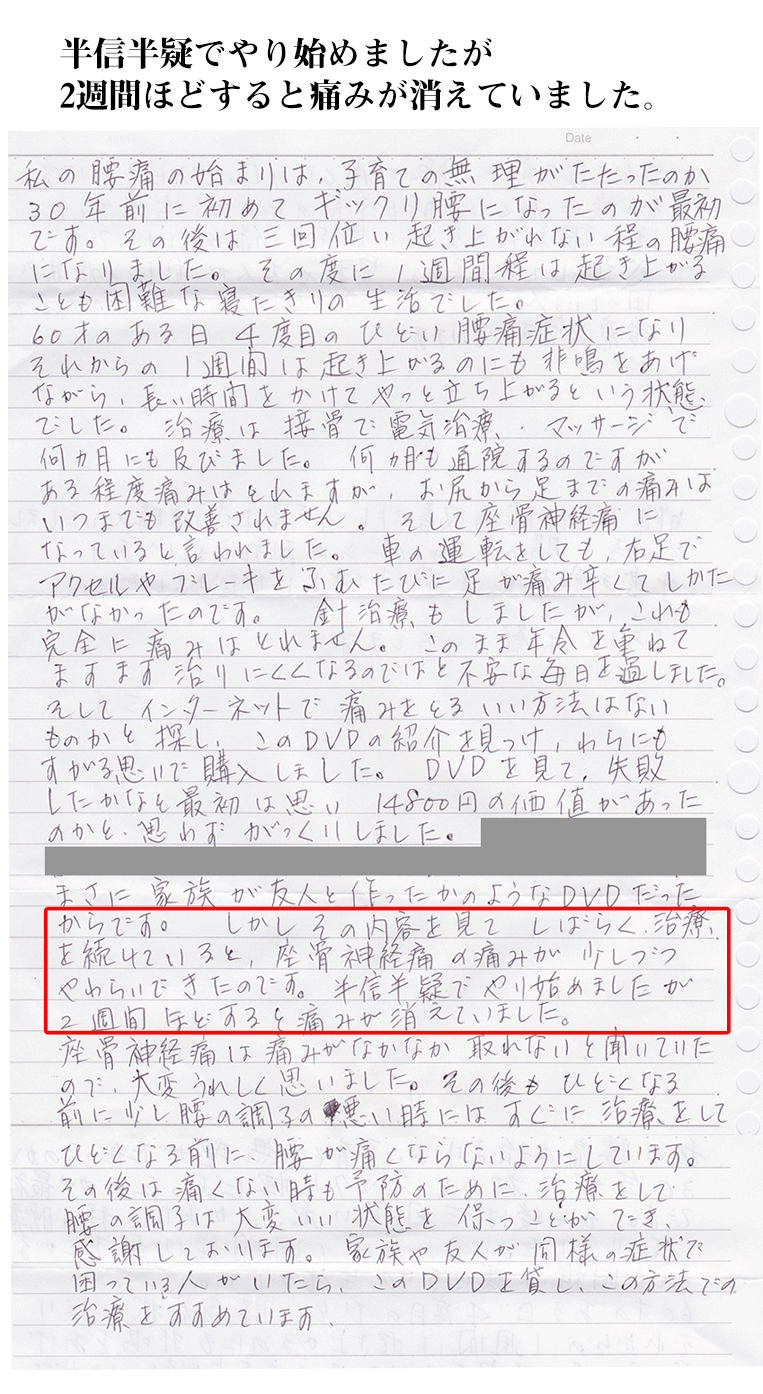 半信半疑でやり始めましたが
2週間ほどすると痛みが消えていました。
Date
私の腰痛の始まりは、子育ての無理がたたったのか
30年前に初めてギックリ腰になったのが最初
です。その後は三回位い起き上がれない程の腰痛
になりました。その度に1週間程は起き上がる
ことも困難な寝たきりの生活でした。
60才のある日4度目のひどい腰痛症状になり
それからの1週間は起き上がるのにも非鳴をあげ
ながら、長い時間をかけてやっと立ち上がるという状態
でした。治療は接骨で電気治療、マッサージで
何カ月にも及びました。何カ月も通院するのですが
ある程度痛みはとれますが、お尻から足までの痛みは
いつまでも改善されません。そして座骨神経痛に
なっていると言われました。車の運転をしても、右足で
アクセルやブレーキをふむたびに足が痛み辛くてしかた
がなかったのです。針治療もしましたが、これも
完全に痛みはとれません。このまま年令を重ねて
ますます治りにくくなるのではと不安な毎日を過しました。
そしてインターネットで痛みをとるいい方法はない
ものかと探し、このDVDの紹介を見つけ、わらにも
すがる思いで購入しました。DVDを見て、失敗
したかなと最初は思い14800円の価値があった
のかと、思わずがっくりしました。
まさに家族が友人と作ったかのようなDVDだった
からです。しかしその内容を見てしばらく、治療
を続けていると、座骨神経痛の痛みが少しづつ
やわらいできたのです。半信半疑でやり始めましたが
2週間ほどすると痛みが消えていました。
座骨神経痛は痛みがなかなか取れないと聞いていた
ので、大変うれしく思いました。その後もひどくなる
前に少し腰の調子の悪い時にはすぐに治療をして
ひどくなる前に、腰が痛くならないようにしています。
その後は痛くない時も予防のために、治療をして
腰の調子は大変いい状態を保つことができ、
感謝しております。家族や友人が同様の症状で
困っている人がいたら、このDVDを貸し、この方法での
治療をすすめています。